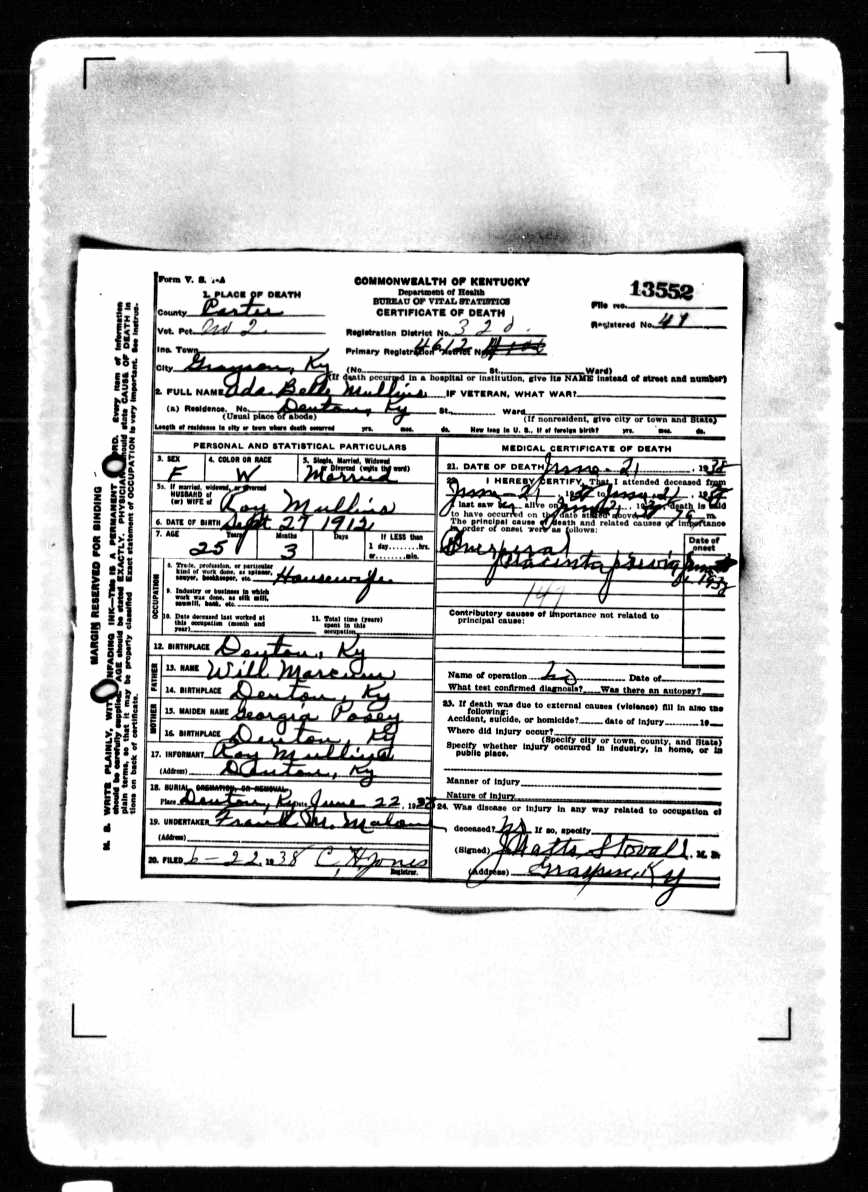 Form V. S. 1-A
COMMONWEALTH OF KENTUCKY
Department of Health
BUREAU OF VITAL STATISTICS
CERTIFICATE OF DEATH
13552
File No.
Registered No. 49
1. PLACE OF DEATH
County Carter
Vot. Pct. No 2
Registration District No. 320
Inc. Town
Primary Registration District No. 4612
City Grayson, Ky (No. St. Ward)
(If death occurred in a hospital or institution, give its NAME instead of street and number)
2. FULL NAME Ida Belle Mullins IF VETERAN, WHAT WAR?
(a) Residence. No. Denton, Ky St., Ward
(Usual place of abode) (If nonresident, give city or town and State)
Length of residence in city or town where death occurred yrs. mos. ds. How long in U. S., if of foreign birth? yrs. mos. ds.
PERSONAL AND STATISTICAL PARTICULARS
3. SEX F
4. COLOR OR RACE W
5. Single, Married, Widowed or Divorced (write the word) Married
5a. If married, widowed, or divorced
HUSBAND of
(or) WIFE of Roy Mullins
6. DATE OF BIRTH Sept 27 1912
7. AGE 25 Years 3 Months Days If LESS than
1 day, hrs.
or min.
OCCUPATION
8. Trade, profession, or particular
kind of work done, as spinner,
sawyer, bookkeeper, etc. Housewife
9. Industry or business in which
work was done, as silk mill,
sawmill, bank, etc.
10. Date deceased last worked at
this occupation (month and
year)
11. Total time (years)
spent in this
occupation
12. BIRTHPLACE Denton, Ky
FATHER
13. NAME Will Marcum
14. BIRTHPLACE Denton, Ky
MOTHER
15. MAIDEN NAME Georgia Posey
16. BIRTHPLACE Denton, Ky
17. INFORMANT Roy Mullins
(Address) Denton, Ky
18. BURIAL, CREMATION, OR REMOVAL
Place Denton, Ky Date June 22, 1938
19. UNDERTAKER Frank M. Malone
(Address)
20. FILED 6-22, 1938 C. H. Jones
Registrar.
MEDICAL CERTIFICATE OF DEATH
21. DATE OF DEATH June-21, 1938
22. I HEREBY CERTIFY, That I attended deceased from
June-21, 1938 to June 21, 1938
I last saw her alive on June 21, 1938, death is said
to have occurred on the date stated above, at m
The principal cause of death and related causes of importance
in order of onset were as follows:
Date of
onset
Puerperal
147
Contributory causes of importance not related to
principal cause:
Name of operation no Date of
What test confirmed diagnosis? Was there an autopsy?
23. If death was due to external causes (violence) fill in also the
following:
Accident, suicide, or homicide? date of injury 19
Where did injury occur?
(Specify city or town, county, and State)
Specify whether injury occurred in industry, in home, or in
public place.
Manner of injury
Nature of injury
24. Was disease or injury in any way related to occupation of
deceased? no If so, specify
(Signed) J Watts Stovall, M. D.
(Address) Grayson, Ky
MARGIN RESERVED FOR BINDING
N. B. WRITE PLAINLY, WITH UNFADING INK—This IS A PERMANENT RECORD. Every item of information
should be carefully supplied. AGE should be stated EXACTLY. PHYSICIANS should state CAUSE OF DEATH in
plain terms, so that it may be properly classified. Exact statement of OCCUPATION is very important. See instruc-
tions on back of certificate.